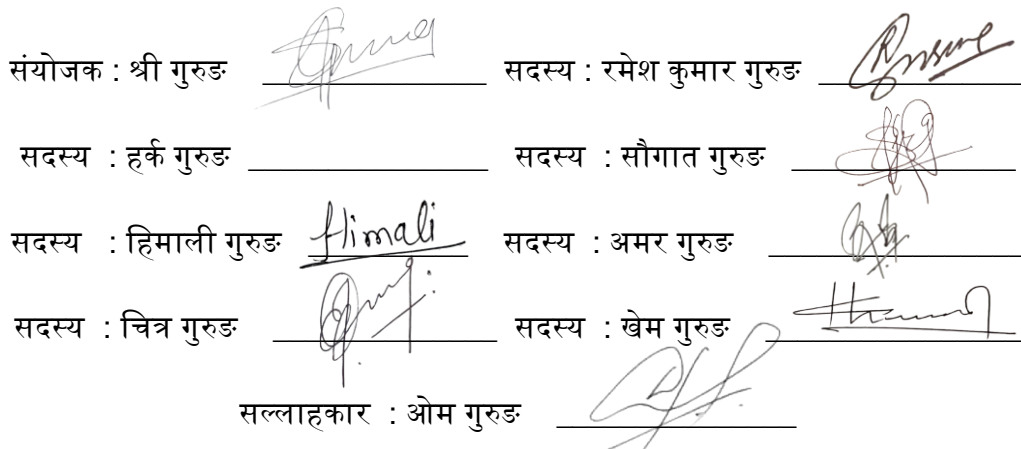 संयोजक : श्री गुरुङ सदस्य : रमेश कुमार गुरुङ
सदस्य : हर्क गुरुङ सदस्य : सौगात गुरुङ
सदस्य : हिमाली गुरुङ Himali सदस्य : अमर गुरुङ
सदस्य : चित्र गुरुङ सदस्य : खेम गुरुङ
सल्लाहकार : ओम गुरुङ